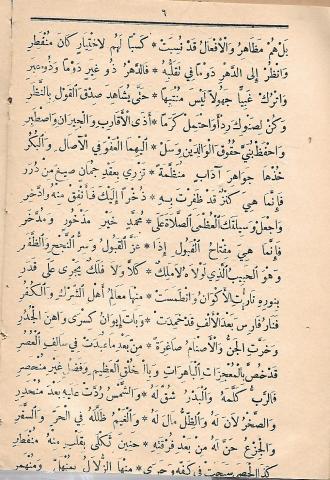 ٦
بَلْ هُمْ مَظَاهِرُ وَالْأَفْعَالُ قَدْ نُسِبَتْ * كَسْبًا لَهُمْ لِاخْتِيَارٍ كَانَ مُنْفَطِرِ
وَانْظُرْ إِلَى الدَّهْرِ دَوْمًا فِي تَقَلُّبِهِ * فَالدَّهْرُ ذُو غِيَرٍ دَوْمًا وَذُو عِبَرِ
وَاتْرُكْ غَبِيًّا جَهُولًا لَيْسَ مُنْتَبِهًا * حَتَّى يُشَاهِدَ صِدْقَ الْقَوْلِ بِالنَّظَرِ
وَكُنْ لِصِنْوِكَ رِدْأً وَاحْتَمِلْ كَرَمًا * أَذَى الْأَقَارِبِ وَالْجِيرَانِ وَاصْطَبِرِ
وَاحْفَظْ بُنَيَّ حُقُوقَ الْوَالِدَيْنِ وَسَلْ * إِلَهَنَا الْعَفْوَ فِي الْآصَالِ وَالْبُكَرِ
خُذْهَا جَوَاهِرَ آدَابٍ مُنَظَّمَةً * تُزْرِي بِعِقْدِ جُمَانٍ صِيغَ مِنْ دُرَرِ
فَإِنَّمَا هِيَ كَنْزٌ قَدْ ظَفِرْتَ بِهِ * ذُخْرًا إِلَيْكَ فَأَنْفِقْ مِنْهُ وَادَّخِرِ
وَاجْعَلْ وَسِيلَتَكَ الْعُظْمَى الصَّلَاةَ عَلَى * مُحَمَّدٍ خَيْرِ مَذْخُورٍ وَمُدَّخَرِ
فَإِنَّمَا هِيَ مِفْتَاحُ الْقَبُولِ إِذَا * عَزَّ الْقَبُولُ وَسِرُّ النُّجْحِ وَالظَّفَرِ
وَهُوَ الْحَبِيبُ الَّذِي لَوْلَاهُ لَا مَلَكٌ * كَلَّا وَلَا فَلَكٌ يَجْرِي عَلَى قَدَرِ
بِنُورِهِ نَارَتِ الْأَكْوَانُ وَانْطَمَسَتْ * مِنْهَا مَعَالِمُ أَهْلِ الشِّرْكِ وَالْكُفُرِ
فَنَارُ فَارِسَ بَعْدَ الْأَلْفِ قَدْ خَمَدَتْ * وَبَاتَ إِيوَانُ كِسْرَى وَاهِنَ الْجُدُرِ
وَخَرَّتِ الْجِنُّ وَالْأَصْنَامُ صَاغِرَةً * مِنْ بَعْدِ مَا عُبِدَتْ فِي سَالِفِ الْعُصُرِ
قَدْ خُصَّ بِالْمُعْجِزَاتِ الْبَاهِرَاتِ وَبِا * لْخُلْقِ الْعَظِيمِ وَفَضْلٍ غَيْرِ مُنْحَصِرِ
فَالرَّبُّ كَلَّمَهُ وَالْبَدْرُ شُقَّ لَهُ * وَالشَّمْسُ رُدَّتْ عَلَيْهِ بَعْدَ مُنْحَدَرِ
وَالصَّخْرُ لَانَ لَهُ وَالظِّلُّ مَالَ لَهُ * وَالْغَيْمُ ظَلَّلَهُ فِي الْحَرِّ وَالسَّفَرِ
وَالْجِذْعُ حَنَّ لَهُ مِنْ بَعْدِ فُرْقَتِهِ * حَنِينَ ثَكْلَى بِقَلْبٍ مِنْهُ مُنْفَطِرِ
كَذَا الْحَصَى سَبَّحَتْ فِي كَفِّهِ وَجَرَى * مِنْهَا الزُّلَالُ بِمُنْهَلٍّ وَمُنْهَمِرِ